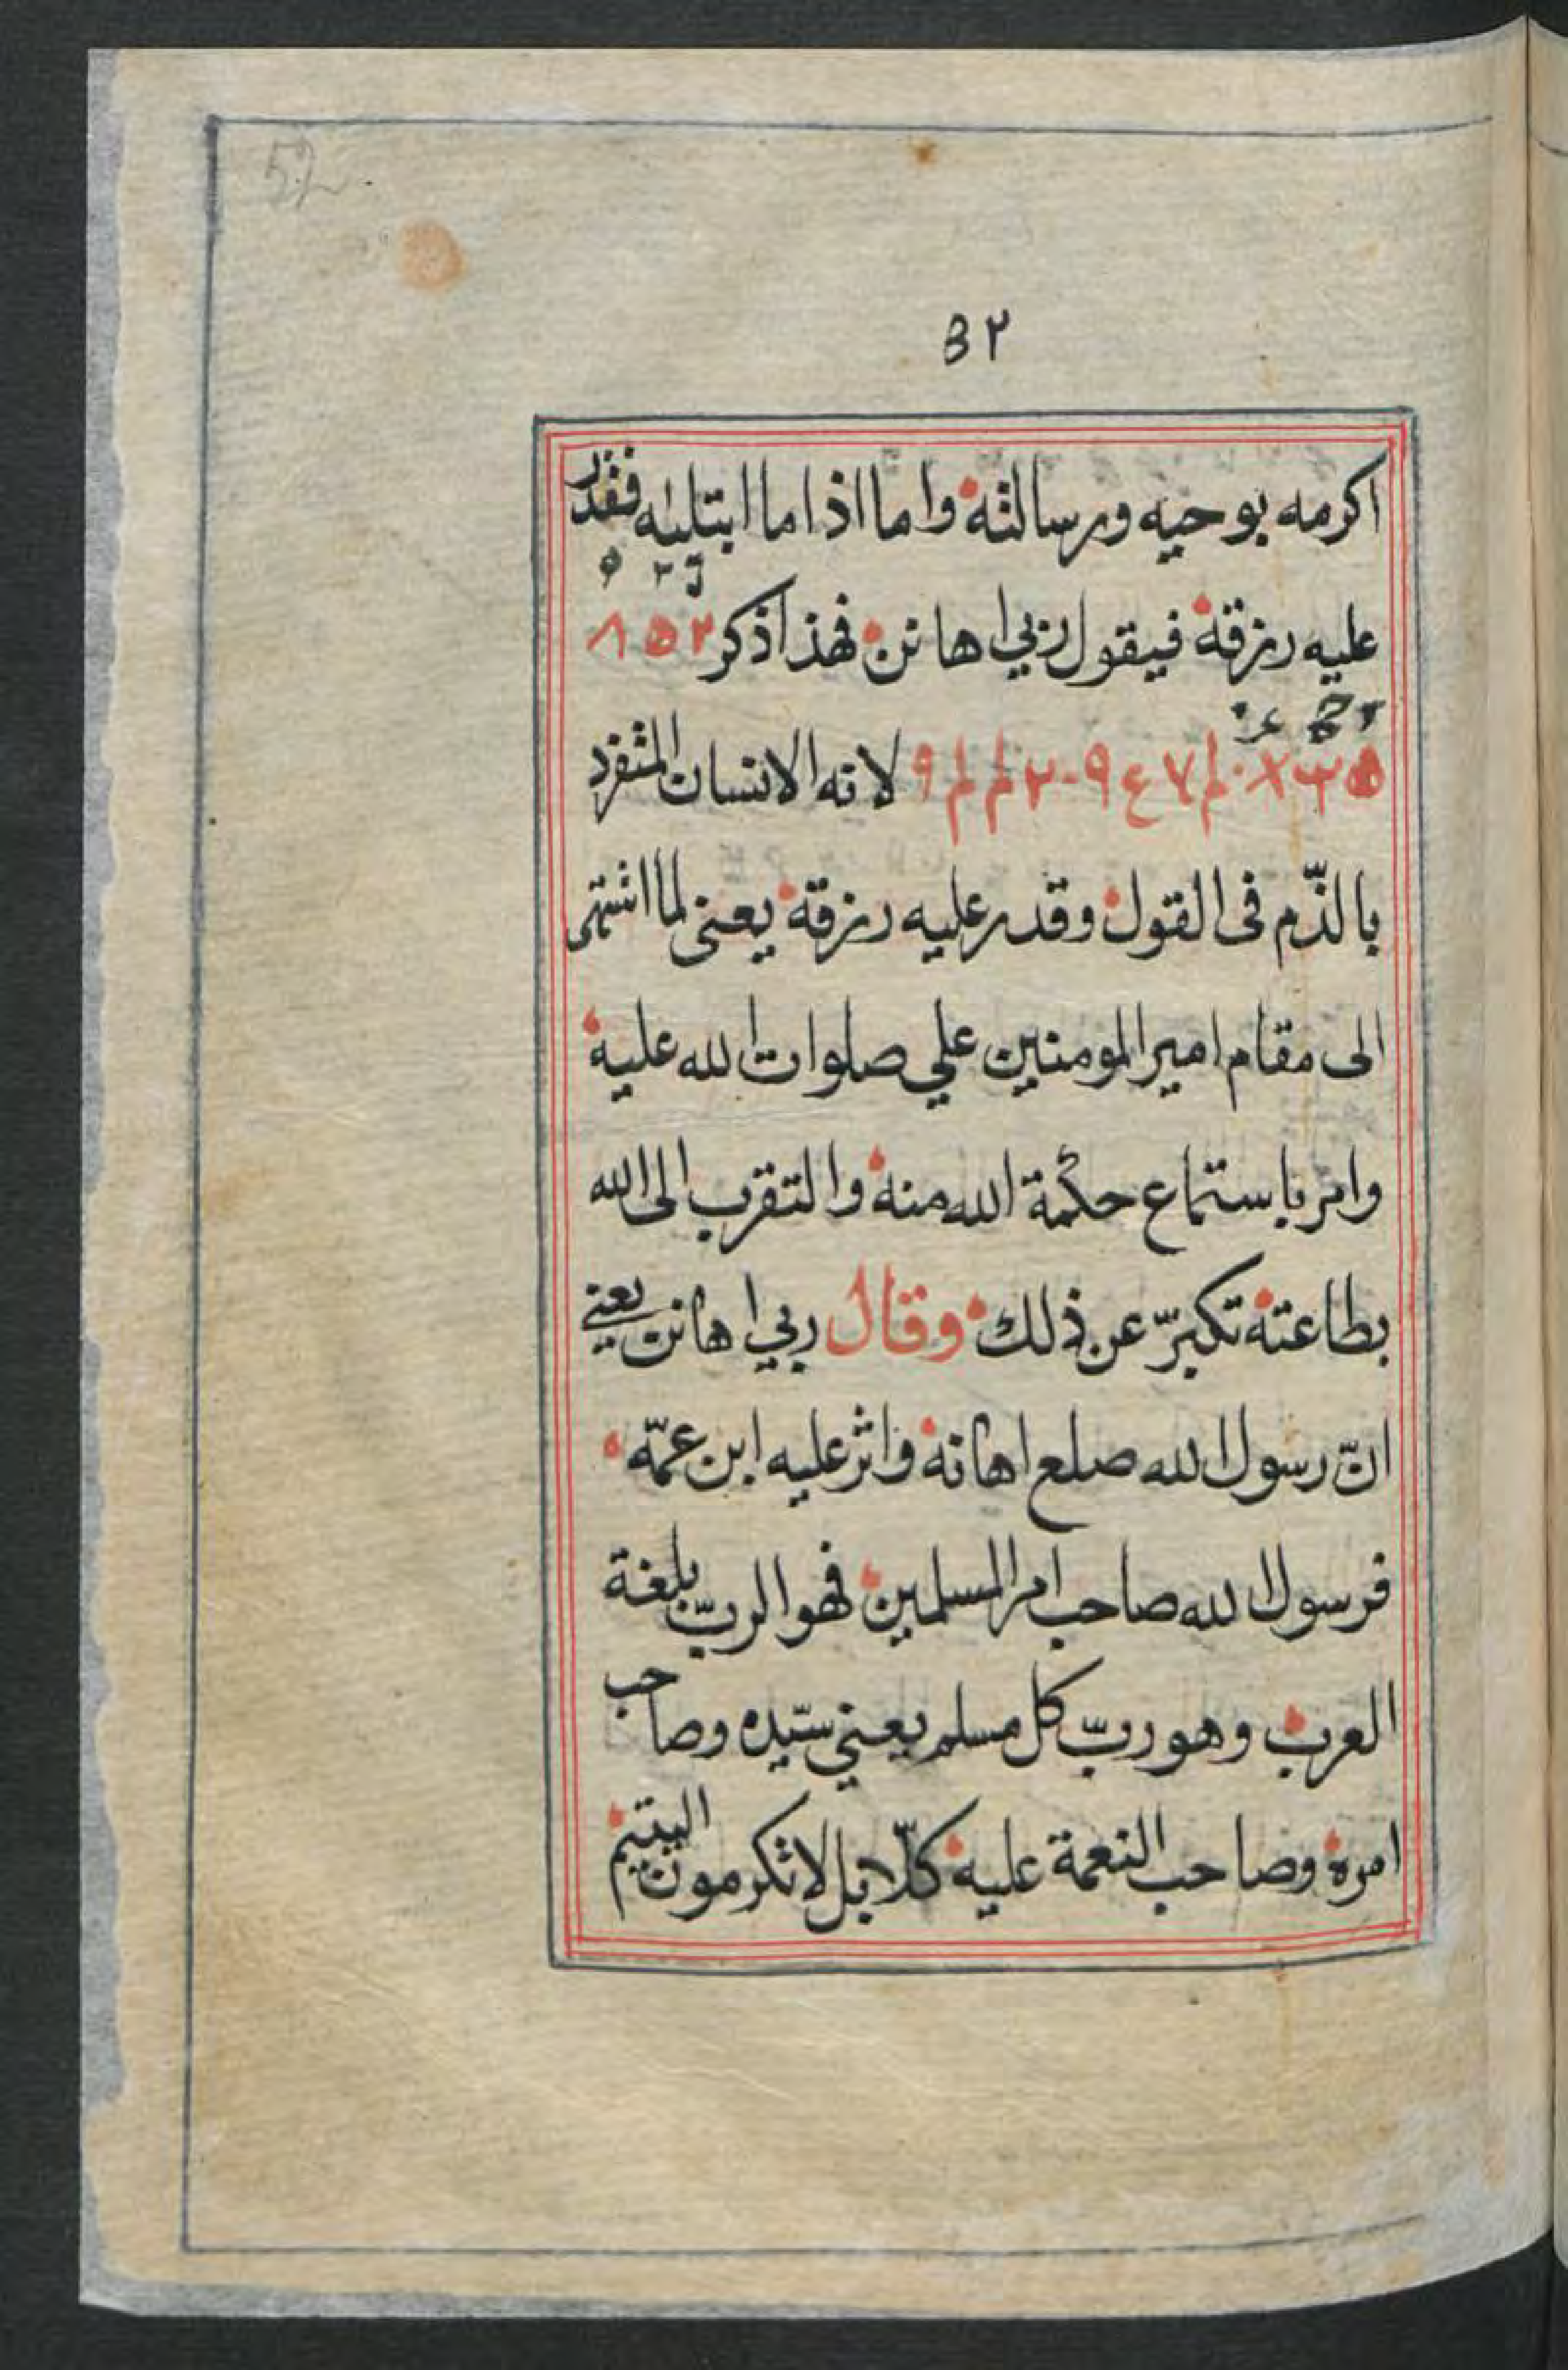 52
٥٢
اكرمه بوحيه ورسالته واما اذا ما ابتليه فقدر
عليه رزقه فيقول ربي اهانن فهذا ذكر
لانه الانسان المتفرد
بالذّم فى القول وقدر عليه رزقه يعنى لما انتهى
الى مقام امير المومنين علي صلوات الله عليه
وامر باستماع حكمة الله منه والتقرب الى الله
بطاعته تكبرّ عن ذلك وقال ربي اهانن يعني
انّ رسول الله صلع اهانه واثر عليه ابن عمّه
فرسول الله صاحب امر المسلمين فهو الربّ بلغة
العرب وهو ربّ كل مسلم يعني سيّده وصاحب
امره وصاحب النعمة عليه كلّا بل لا تكرمون اليتيم